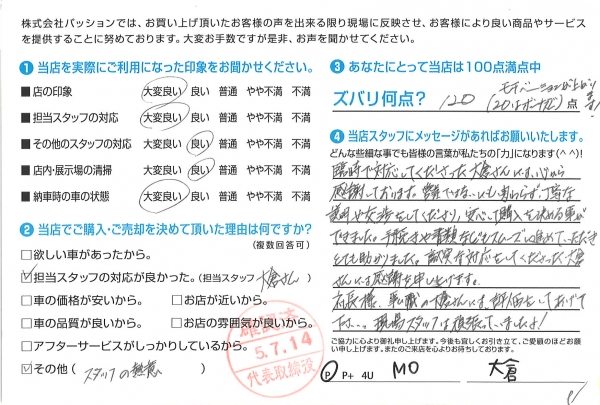 株式会社パッションでは、お買い上げ頂いたお客様の声を出来る限り現場に反映させ、お客様により良い商品やサービス
を提供することに努めております。大変お手数ですが是非、お声を聞かせてください。
❶ 当店を実際にご利用になった印象をお聞かせください。
■ 店の印象 大変良い 良い 普通 やや不満 不満
■ 担当スタッフの対応 大変良い 良い 普通 やや不満 不満
■ その他のスタッフの対応 大変良い 良い 普通 やや不満 不満
■ 店内・展示場の清掃 大変良い 良い 普通 やや不満 不満
■ 納車時の車の状態 大変良い 良い 普通 やや不満 不満
❷ 当店でご購入・ご売却を決めて頂いた理由は何ですか?
(複数回答可)
□欲しい車があったから。
☑担当スタッフの対応が良かった。(担当スタッフ 大倉さん )
□車の価格が安いから。 □お店が近いから。
□車の品質が良いから。 □お店の雰囲気が良いから。
□アフターサービスがしっかりしているから。
☑その他( スタッフの熱意 )
確認済
5.7.14
代表取締役
❸ あなたにとって当店は100点満点中
ズバリ何点? 120 点
❹ 当店スタッフにメッセージがあればお願いいたします。
どんな些細な事でも皆様の言葉が私たちの「力」になります(^^)!
臨時で対応してくださった大倉さんには、心から
感謝しております。
説明や交渉をしてくださり、安心して購入を決める事が
できました。手続きや書類などもスムーズに進めていただき
とても助かりました。誠実な対応をしてくださった大倉
さんには感謝を申し上げます。
現場スタッフは頑張っていましたよ!
ご協力に心より御礼申し上げます。今後も宜しくお引き立て、ご愛顧のほどお願
い申し上げます。またのご来店を心よりお待ちしております。
P P+ 4U MO 大倉